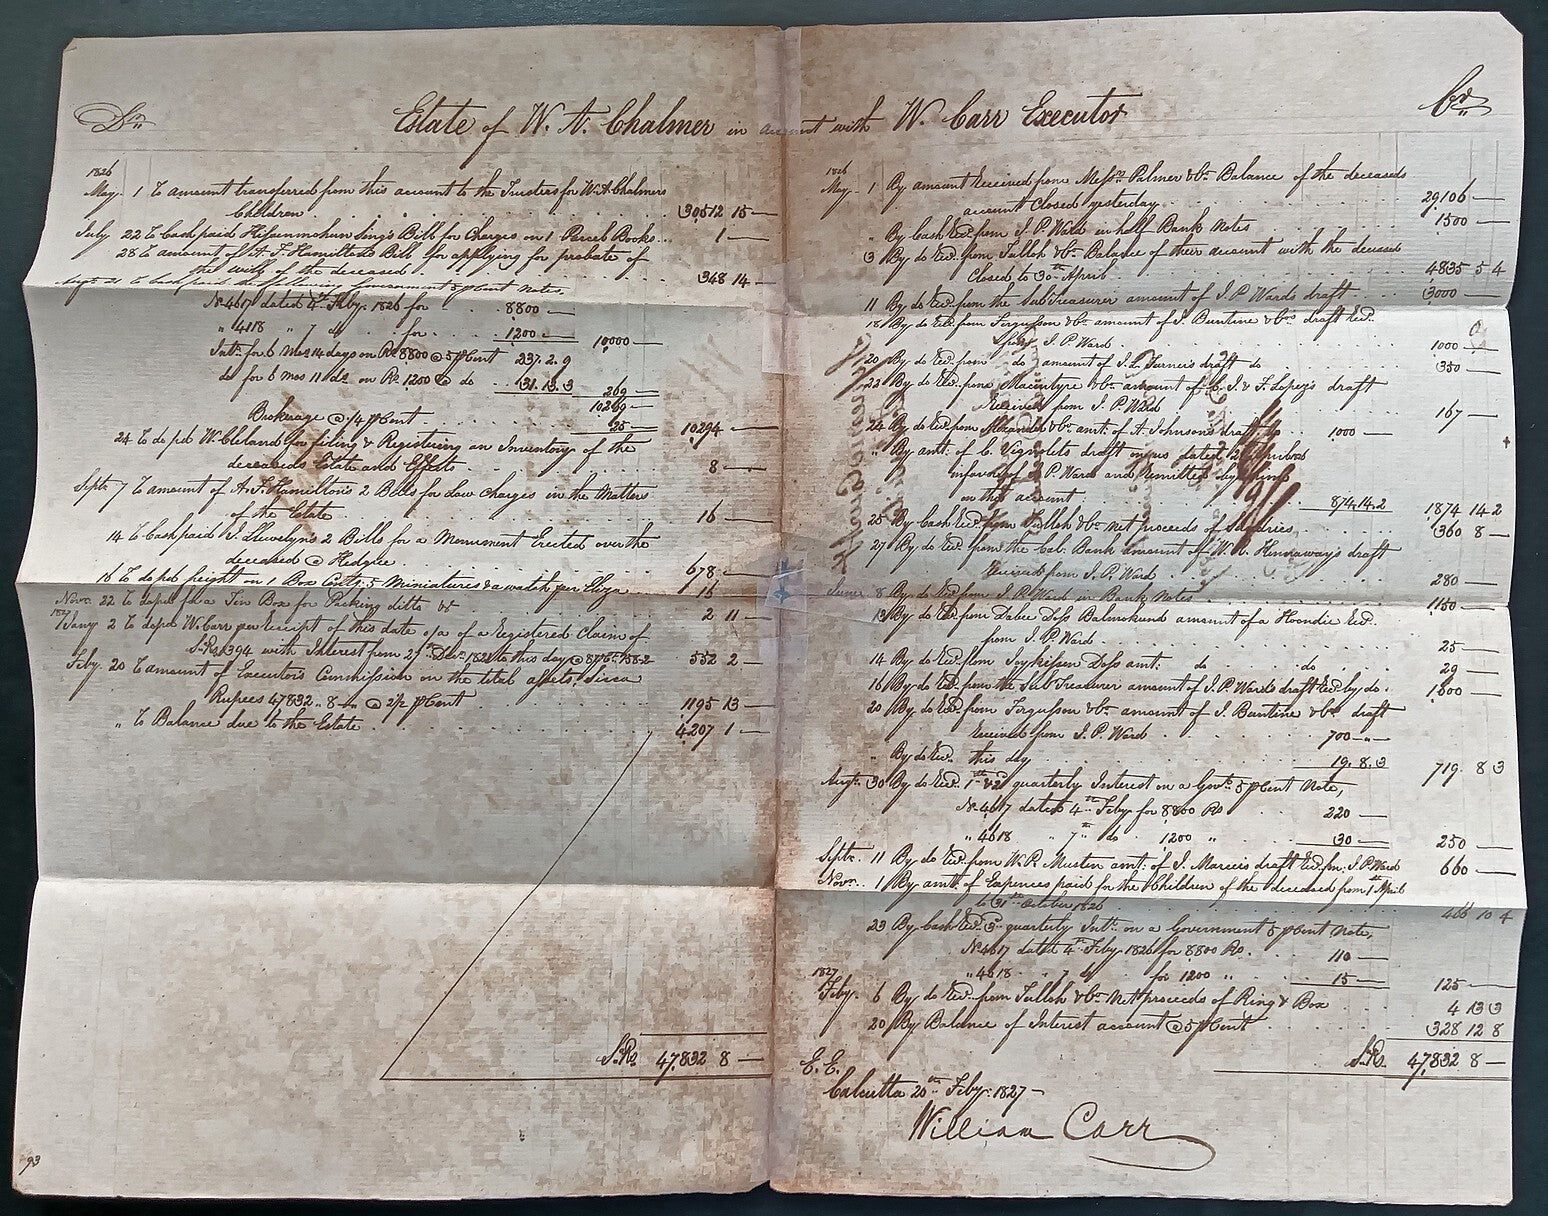 Dr.
Estate of W. A. Chalmer in account with W. Carr Executor
Cr.
1826
May 1 To amount transferred from this account to the Trustees for W. A. Chalmers
Children 30512 15 —
July 22 To Cash paid Sings Bill for Charges on 1 Parcel Books 1 —
28 To amount of A. F. Hamiltons Bill for applying for probate of
the will of the deceased 348 14 —
Augt. 21 To Cash paid the following Government 5 pCent Notes,
No. 4617 dated 4th Feby. 1826 for 8800 —
" 4618 " 7 do for 1200 — 10000 —
Intt. for 6 Mos 14 days on Rs 8800 @ 5 pCent 237. 2. 9
do for 6 mos 11 ds. on Rs. 1200 @ do 31. 13. 3 269 —
10269 —
Brokerage @ 1/4 pCent 25 — 10294 —
24 To do pd. W. Cleland for filing & Registering an Inventory of the
deceaseds Estate and Effects 8 —
Septr. 7 To amount of A. F. Hamiltons 2 Bills for Law Charges in the Matters
of the Estate 16 —
14 To Cash paid J. Llewelyns 2 Bills for a Monument Erected over the
deceased @ Hedgee 678 —
16 To do pd. freight on 1 Box Contg. 5 Miniatures & a watch per Eliza 16 —
Novr. 22 To do pd. for a Tin Box for Packing ditto &c 2 11 —
1827
Jany 2 To do pd. W. Carr per Receipt of this date o/a of a Registered Claim of
S. Rs. 394 with Interest from 27th Decr. 1821 to this day @ 8 pCt. 552 2 —
Feby. 20 To amount of Executors Commission on the total assets, Sicca
Rupees 47832 .. 8 — @ 2 1/2 pCent 1195 13 —
" To Balance due to the Estate 4207 1 —
S. Rs. 47832 8 —
93
1826
May 1 By amount Received from Messrs. Palmer & Co. Balance of the deceaseds
account Closed yesterday 29106 —
" By Cash Recd. from J. P. Ward in half Bank Notes 1500 —
3 By do Recd. from Tulloh & Co. Balance of their account with the deceased
Closed to 30th April 4835 5 4
11 By do Recd. from the Sub Treasurer amount of J. P. Wards draft 3000 —
18 By do Recd. from Fergusson & Co. amount of J. Buntine & Cos draft Recd.
from J. P. Ward 1000 —
20 By do Recd. from do amount of J. L. Turners draft do 350 —
22 By do Recd. from Macintyre & Co. amount of C. J. & F. Lopez's draft
Received from J. P. Ward 167 —
24 By do Recd. from Alexander & Co. amt. of A. Johnsons draft do 1000 —
" By amt. of C. Vignolets draft on us dated
in favor of J. P. Ward and remitted by him
on this account 874. 14. 2 1874 14 2
25 By Cash Recd. from Tulloh & Co. net proceeds of Sundries 360 8 —
27 By do Recd. from the Cal. Bank amount of W. C. Hennaway's draft
Received from J. P. Ward 280 —
June 8 By do Recd. from J. P. Ward in Bank Notes 1150 —
13 By do Recd. from Dabee Doss Balmokund amount of a Hoondie Recd.
from J. P. Ward 25 —
14 By do Recd. from Joykissen Doss amt. do do 29 —
16 By do Recd. from the Sub Treasurer amount of J. P. Wards draft Recd. by do. 1800 —
20 By do Recd. from Fergusson & Co. amount of J. Buntine & Co. draft
Received from J. P. Ward 700 — " —
" By do Recd. this day 19. 8. 3 719. 8 3
Augt. 30 By do Recd. 1st & 2d quarterly Interest on a Govt. 5 pCent Note,
No. 4617 dated 4th Feby. for 8800 Rs 220 —
" 4618 " 7th do 1200 " 30 — 250 —
Septr. 11 By do Recd. from W. R. Muston amt. of J. Marcus draft Recd. fm. J. P. Ward 660 —
Novr. 1 By amt. of Expences paid for the Children of the deceased from 1st April
to 31st October 1826 466 10 4
23 By Cash Recd. 3d quarterly Intt. on a Government 5 pCent Note,
No. 4617 dated 4th Feby. 1826 for 8800 Rs. 110 —
" 4618 " 7 do for 1200 " 15 — 125 —
1827
Feby. 6 By do Recd. from Tulloh & Co. Nett proceeds of Ring & Box 4 13 3
20 By Balance of Interest account @ 5 pCent 328 12 8
S. Rs. 47832 8 —
E. E.
Calcutta 20th Feby. 1827 —
William Carr